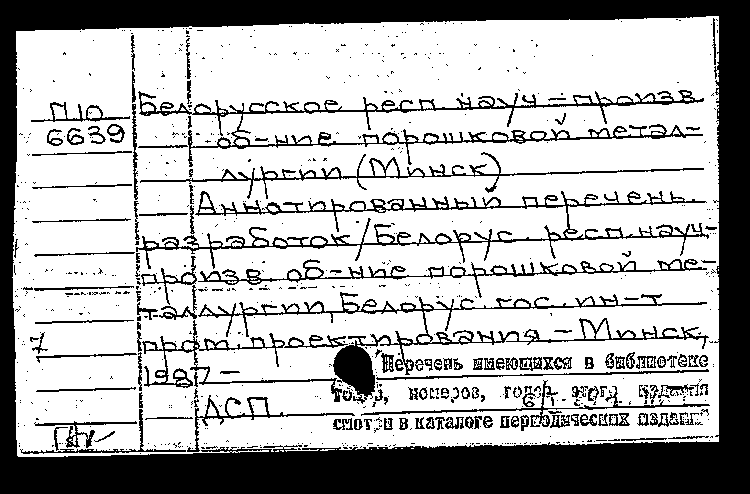 П10
6639
Белорусское респ. науч-произв.
об-ние порошковой метал-
лургии (Минск)
Аннотированный перечень
разработок/Белорус. респ. науч.-
произв. об-ние порошковой ме-
таллургии, Белорус. гос. ин-т
7
пром. проектирования. - Минск,
1987 -
ДСП.
Перечень имеющихся в библиотеке
томов, номеров, годов этого издания
смотри в каталоге периодических изданий